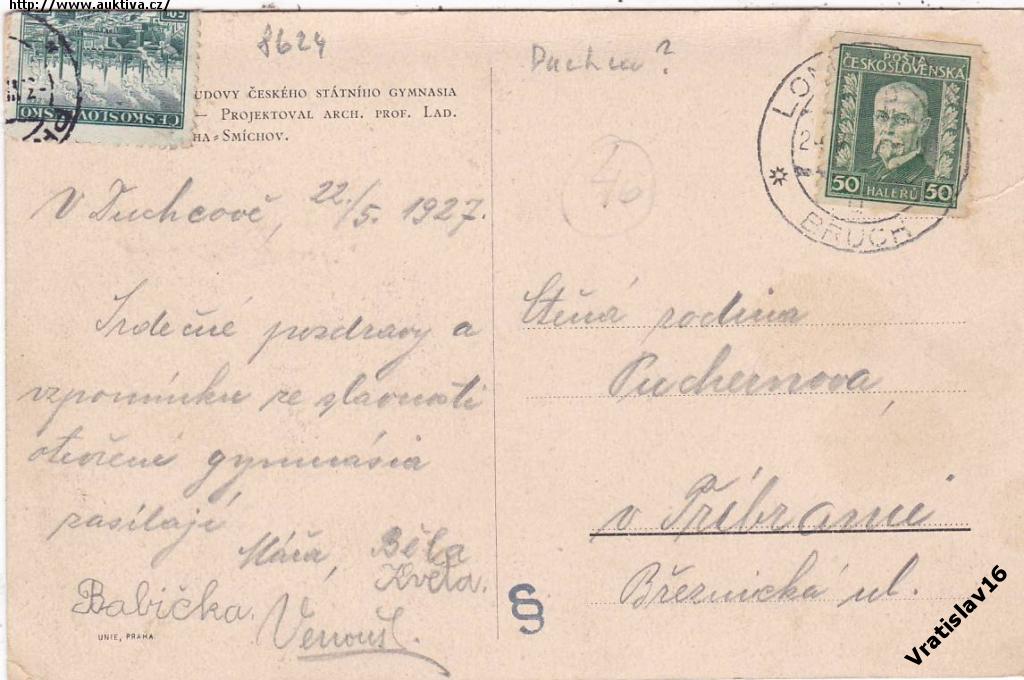 http://www.auktiva.cz/
8624
Duchcov?
ČESKOSLOVENSKO
UDOVY ČESKÉHO STÁTNÍHO GYMNASIA
— PROJEKTOVAL ARCH. PROF. LAD.
HA-SMÍCHOV.
V Duchcově, 22./5. 1927.
Srdečné pozdravy a
vzpomínku ze slavnosti
otevření gymnásia
zasílají
Máňa, Běla
Květa.
Babička.
Venouš.
UNIE, PRAHA
40
POŠTA
ČESKOSLOVENSKÁ
50 HALÉŘŮ 50
LOM
BRUCH
Ctěná rodina
Puchernova
v Příbrami
Březnická ul.
§
Vratislav16